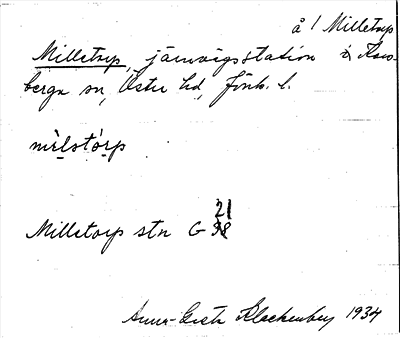 å / Milletorp
Milletorp, järnvägsstation i Rams-
berga sn, Östra hd, Jönk. l.
mìlstòrp
Milletorp stn G 21
Anna-Greta Klockenberg 1934